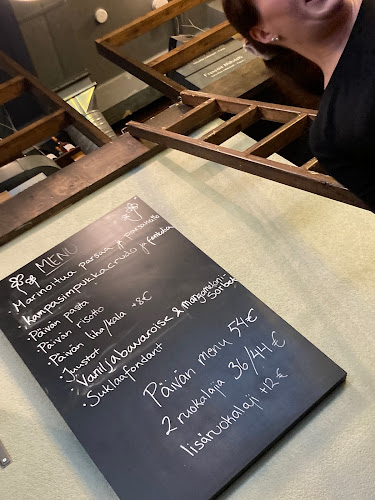 MENU
Marinoitua parsaa ja
· Kampasimpukkacrudo ja
· Päivän pasta
· Päivän risotto
· Päivän liha/kala +8€
· Juustot
· Vaniljabavaroise & mangomeloni-
sorbet
· Suklaafondant
Päivän menu 54€
2 ruokalajia 36/44€
lisäruokalaji +12€